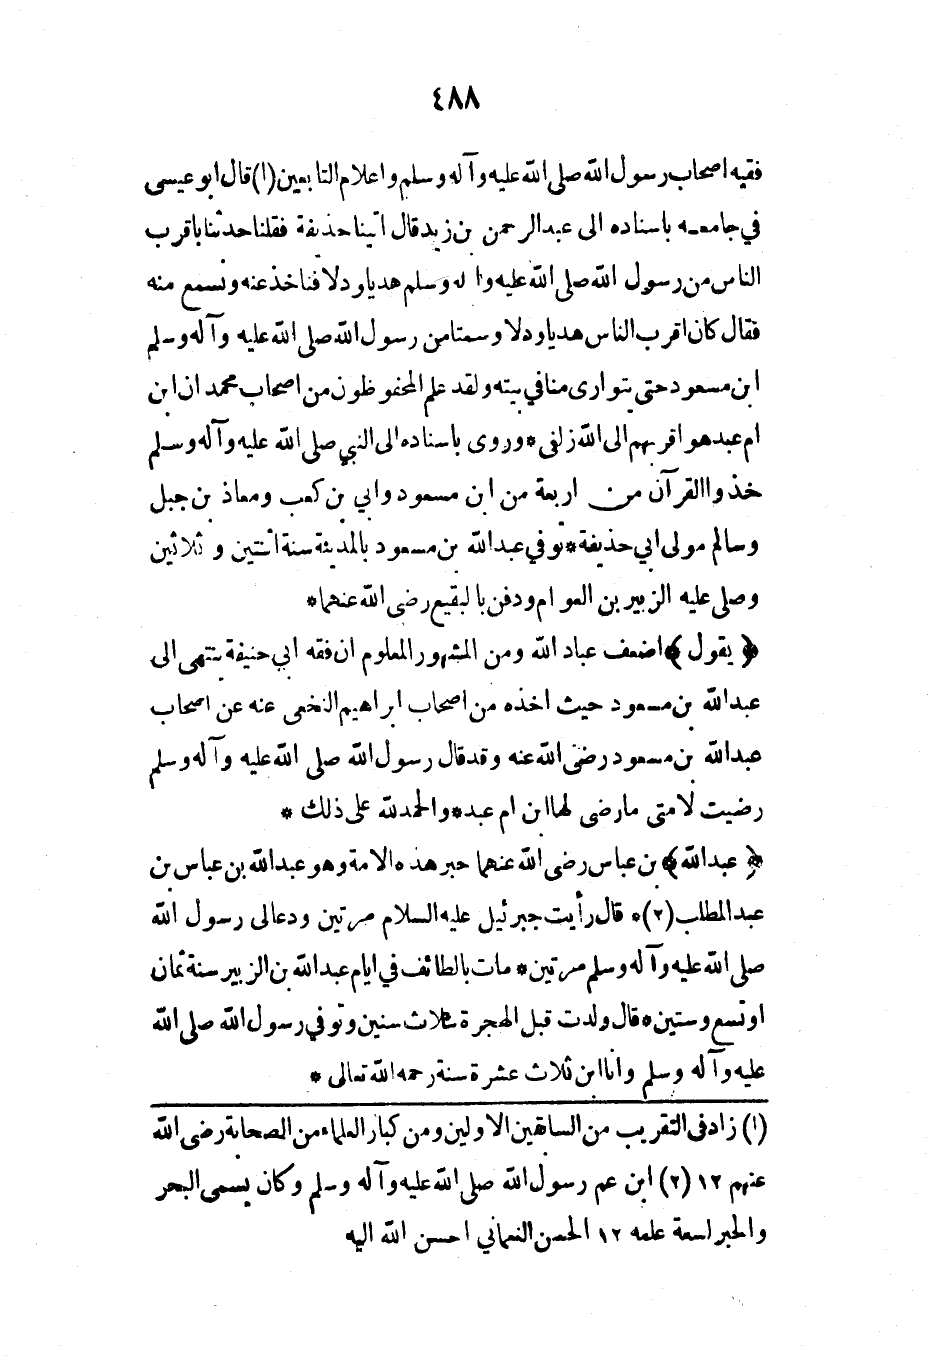 ٤٨٨
فقيه اصحاب رسول الله صلى الله عليه وآله وسلم واعلام التابعين (١) قال ابو عيسى
في جامعه باسناده الى عبد الرحمن بن زيد قال اتينا حذيفة فقلنا حدثنا باقرب
الناس من رسول الله صلى الله عليه وآله وسلم هديا ودلا فناخذ عنه ونسمع منه
فقال كان اقرب الناس هديا ودلا وسمتا من رسول الله صلى الله عليه وآله وسلم
ابن مسعود حتى يتوارى منا في بيته ولقد علم المحفوظون من اصحاب محمد ان ابن
ام عبد هو اقربهم الى الله زلفى * وروى باسناده الى النبي صلى الله عليه وآله وسلم
خذوا القرآن من اربعة من ابن مسعود وابي بن كعب ومعاذ بن جبل
وسالم مولى ابي حذيفة * توفي عبد الله بن مسعود بالمدينة سنة اثنتين و ثلاثين
وصلى عليه الزبير بن العوام ودفن بالبقيع رضى الله عنهما *
﴿ يقول ﴾ اضعف عباد الله ومن المشهور المعلوم ان فقه ابي حنيفة ينتهى الى
عبد الله بن مسعود حيث اخذه من اصحاب ابراهيم النخعى عنه عن اصحاب
عبد الله بن مسعود رضى الله عنه وقد قال رسول الله صلى الله عليه وآله وسلم
رضيت لامتى مارضى لها ابن ام عبد * والحمد لله على ذلك *
﴿ عبد الله ﴾ بن عباس رضى الله عنهما حبر هذه الامة وهو عبد الله بن عباس بن
عبد المطلب (٢) * قال رأيت جبرئيل عليه السلام مرتين ودعالى رسول الله
صلى الله عليه وآله وسلم مرتين * مات بالطائف في ايام عبد الله بن الزبير سنة ثمان
اوتسع وستين * قال ولدت قبل الهجرة بثلاث سنين وتوفي رسول الله صلى الله
عليه وآله وسلم وانا ابن ثلاث عشرة سنة رحمه الله تعالى *
(١) زاد فى التقريب من السابقين الاولين ومن كبار العلماء من الصحابة رضى الله
عنهم ١٢ (٢) ابن عم رسول الله صلى الله عليه وآله وسلم وكان يسمى البحر
والحبر لسعة علمه ١٢ الحسن النعماني احسن الله اليه